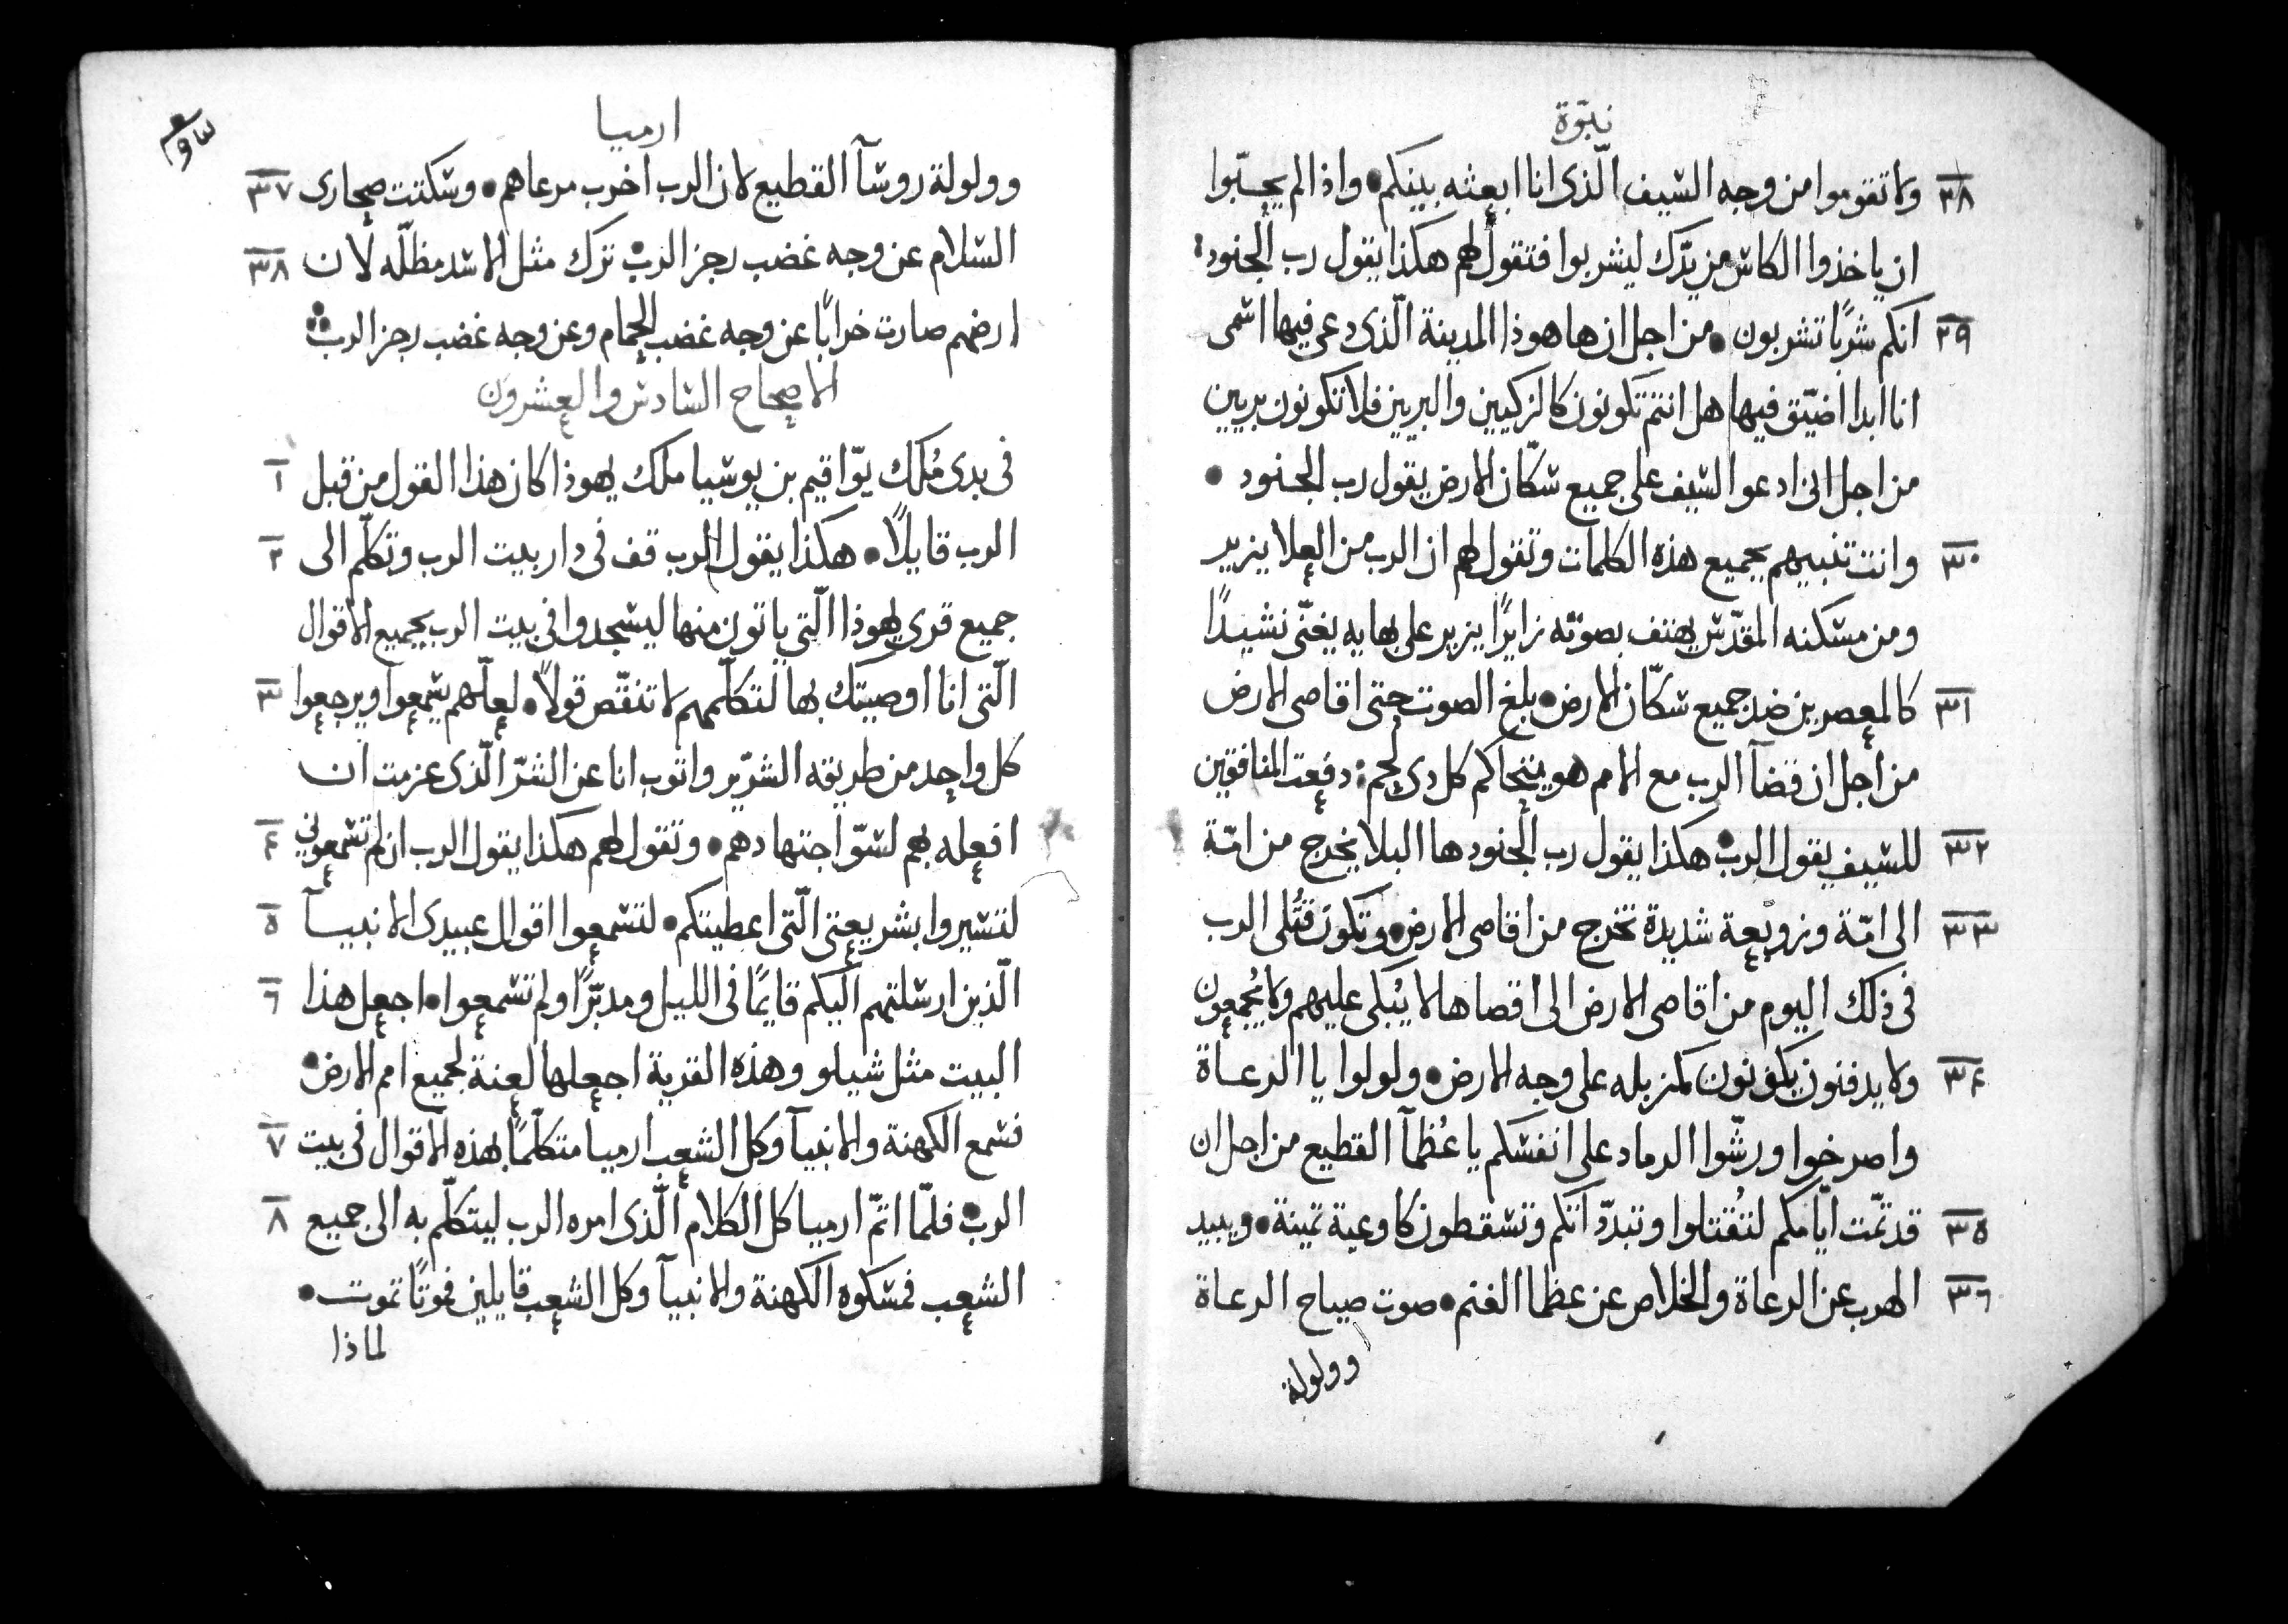 نبوّة
٣٨ ولا تقوموا من وجه السيف الّذى انا ابعثه بينكم • واذا لم يحسبّوا
ان ياخذوا الكاس من يدّك ليشربوا فتقول لهم هكذا يقول رب الجنود:
٣٩ انكم شربًا تشربون • من اجل ان ها هوذا المدينة الّذى دعى فيها اسمى
انا ابدا اضيّق فيها هل انتم تكونون كالزكيين والبريين فلا تكونون بريين
من اجل انى ادعو السيف على جميع سكّان الارض يقول رب الجنود •
٣٠ وانت تنبيهم بجميع هذه الكلمات وتقول لهم ان الرب من العلا يزير
ومن مسكنه المقدّس يهتف بصوته زايرًا يزير على بهايه يغنّى نشيدًا
٣١ كالمعصرين ضد جميع سكّان الارض • بلغ الصوت حتى اقاصى الارض
من اجل ان قضآ الرب مع الامم هو يتحاكم كل دى لحم: دفعت المنافقين
٣٢ للسيف يقول الرب • هكذا يقول رب الجنود ها البلا يخرج من امّة
٣٣ الى امّة وزوبعة شديدة تخرج من اقاصى الارض • وتكون قتلى الرب
فى ذلك اليوم من اقاصى الارض الى اقصاها لا يُبكى عليهم ولا يُجمعون
٣٤ ولا يدفنون يكونون كمزبله على وجه الارض • ولولوا يا الرعاة
واصرخوا ورشّوا الرماد على انفسكم يا عُظمآ القطيع من اجل ان
٣٥ قد تمّت ايّامكم لتُقتلوا وتبدّداتكم وتسقطون كاوعية ثمينة • ويبيد
٣٦ الهرب عن الرعاة والخلاص عن عظما الغنم • صوت صياح الرعاة
وولولة
ارميا
وولولة روسآ القطيع لان الرب اخرب مرعاهم • وسكتت صحارى ٣٧
السلام عن وجه غضب رجز الرب • ترك مثل الاسد مظلّه لان ٣٨
ارضهم صارت خرابًا عن وجه غضب الحمام وعن وجه غضب رجز الرب
الاصحاح السادس والعشرون
فى بدى مُلك يوّاقيم بن يوسيا ملك يهوذا كان هذا القول من قبل ١
الرب قايلاً • هكذا يقول الرب قف فى دار بيت الرب وتكلّم الى ٢
جميع قرى يهوذا الّتى ياتون منها ليسجدوا فى بيت الرب بجميع الاقوال
الّتى انا اوصيتك بها لتكلّمهم لا تنقّص قولاً • لعلّهم يسمعوا ويرجعوا ٣
كل واحد من طريقه الشرّير واتوب انا عن الشرّ الّذى عزمت ان
افعله بهم لسوّ اجتهادهم • وتقول لهم هكذا يقول الرب ان لم تسمعونى ٤
لتسيروا بشريعتى الّتى اعطيتكم • لتسمعوا اقوال عبيدى الانبيآ ٥
الّذين ارسلتهم اليكم قايمًا فى الليل ومدبّرًا ولم تسمعوا • اجعل هذا ٦
البيت مثل شيلو وهذه القرية اجعلها لعنة لجميع امم الارض •
فسمع الكهنة والانبيآ وكل الشعب ارميا متكلّمًا بهذه الاقوال فى بيت ٧
الرب • فلمّا اتمّ ارميا كل الكلام الّذى امره الرب ليتكلّم به الى جميع ٨
الشعب فمسكوه الكهنة والانبيآ وكل الشعب قايلين فموتًا تموت •
لماذا